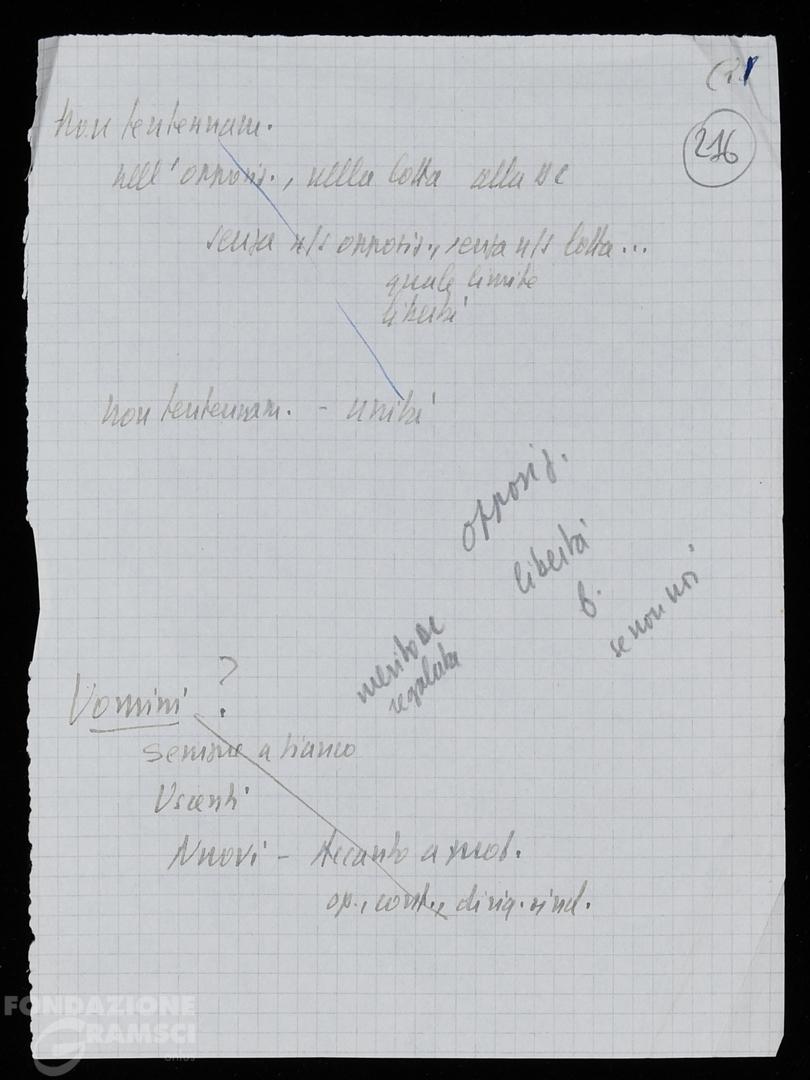 216
Non tentennam.
nell'opposiz., nella lotta alla DC
senza n/s opposiz., senza n/s lotta...
quale limite
libertà
non tentennam. - unità
opposiz.
libertà
se non noi
merito DC
regalata
Uomini ?
Sempre a fianco
Uscenti
Nuovi - Accanto a
op., cont., dirig. sind.
FONDAZIONE
GRAMSCI
onlus